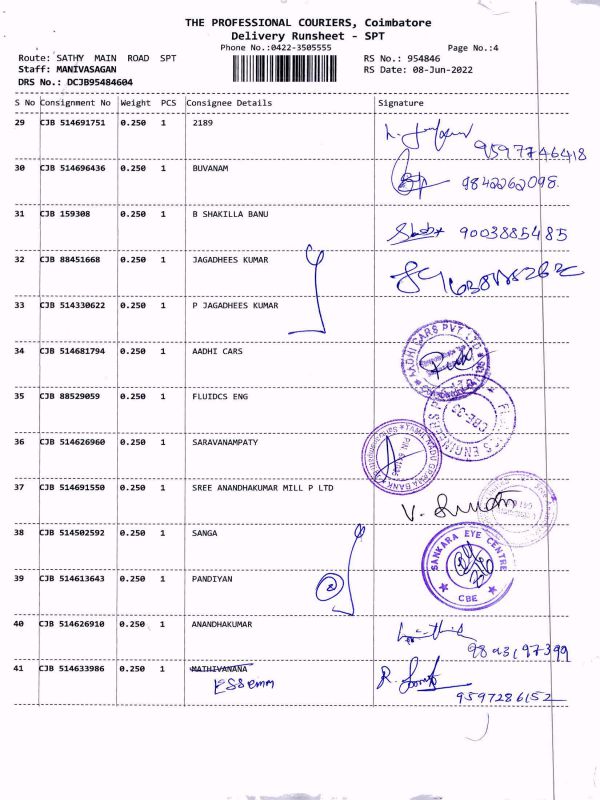 THE PROFESSIONAL COURIERS, Coimbatore
Delivery Runsheet - SPT
Phone No.:0422-3505555
Page No.:4
Route: SATHY MAIN ROAD SPT
RS No.: 954846
Staff: MANIVASAGAN
RS Date: 08-Jun-2022
DRS No.: DCJB95484604
S No Consignment No Weight PCS Consignee Details Signature
29 CJB 514691751 0.250 1 2189
9597746418
30 CJB 514696436 0.250 1 BUVANAM
9842262098
31 CJB 159308 0.250 1 B SHAKILLA BANU
9003885485
32 CJB 88451668 0.250 1 JAGADHEES KUMAR
33 CJB 514330622 0.250 1 P JAGADHEES KUMAR
34 CJB 514681794 0.250 1 AADHI CARS
AADHI CARS PVT LTD
35 CJB 88529059 0.250 1 FLUIDCS ENG
CBE-35
36 CJB 514626960 0.250 1 SARAVANAMPATY
TAMIL NADU GRAMA BANK
37 CJB 514691550 0.250 1 SREE ANANDHAKUMAR MILL P LTD
38 CJB 514502592 0.250 1 SANGA
SANKARA EYE CENTRE
CBE
39 CJB 514613643 0.250 1 PANDIYAN
40 CJB 514626910 0.250 1 ANANDHAKUMAR
41 CJB 514633986 0.250 1 MATHIVANANA
ESSemm
9597286152